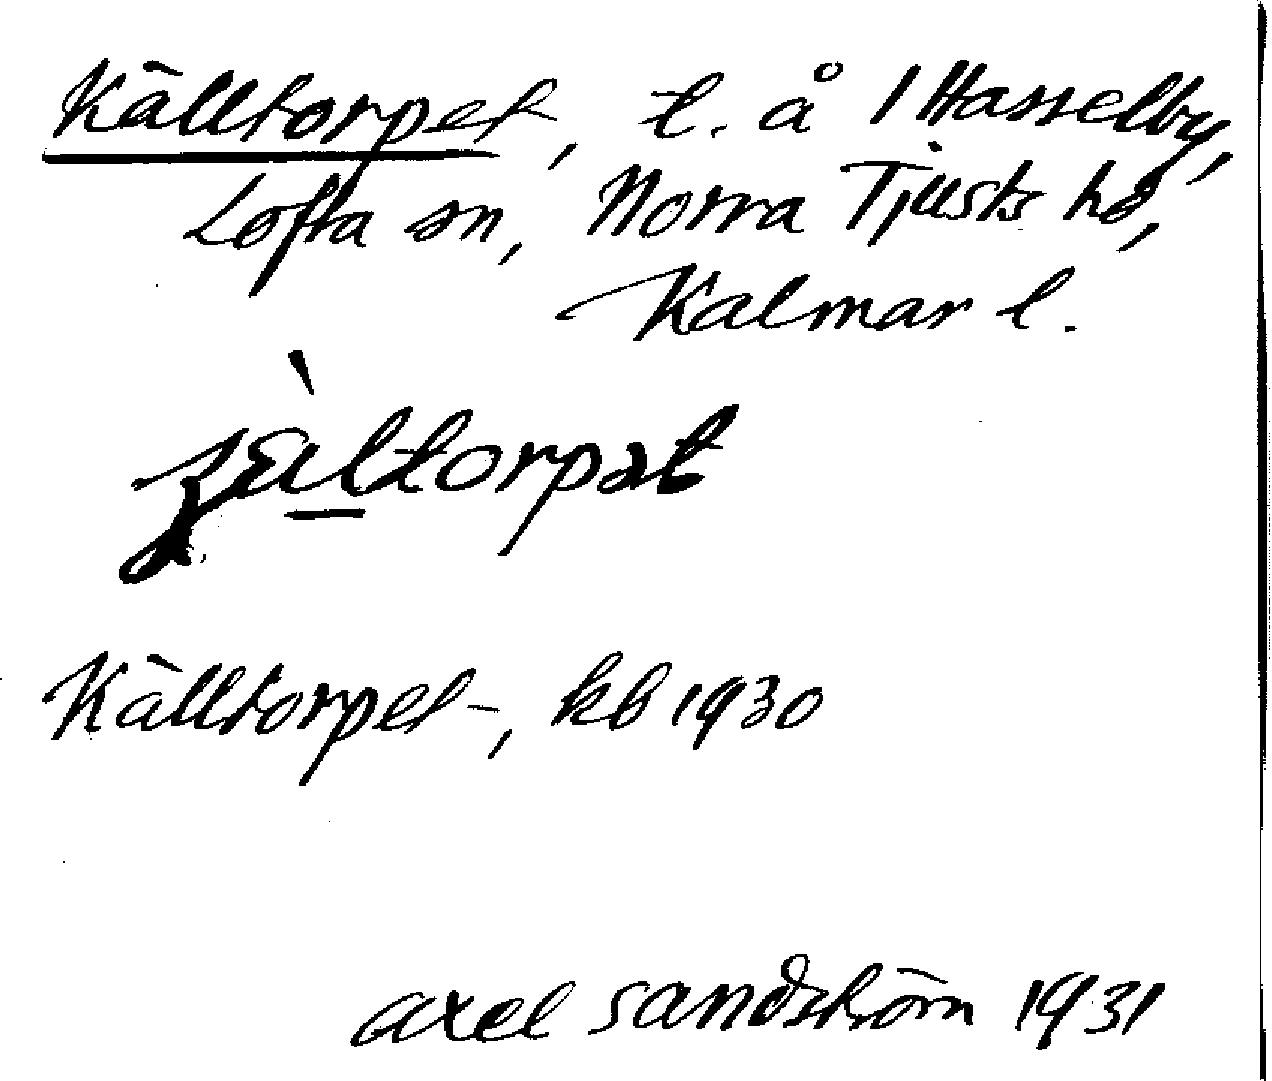 Källtorpet, t. å 1 Hasselby,
Lofta sn, Norra Tjusts hd,
Kalmar l.
Källtorpet-, kb 1930
axel sandström 1931